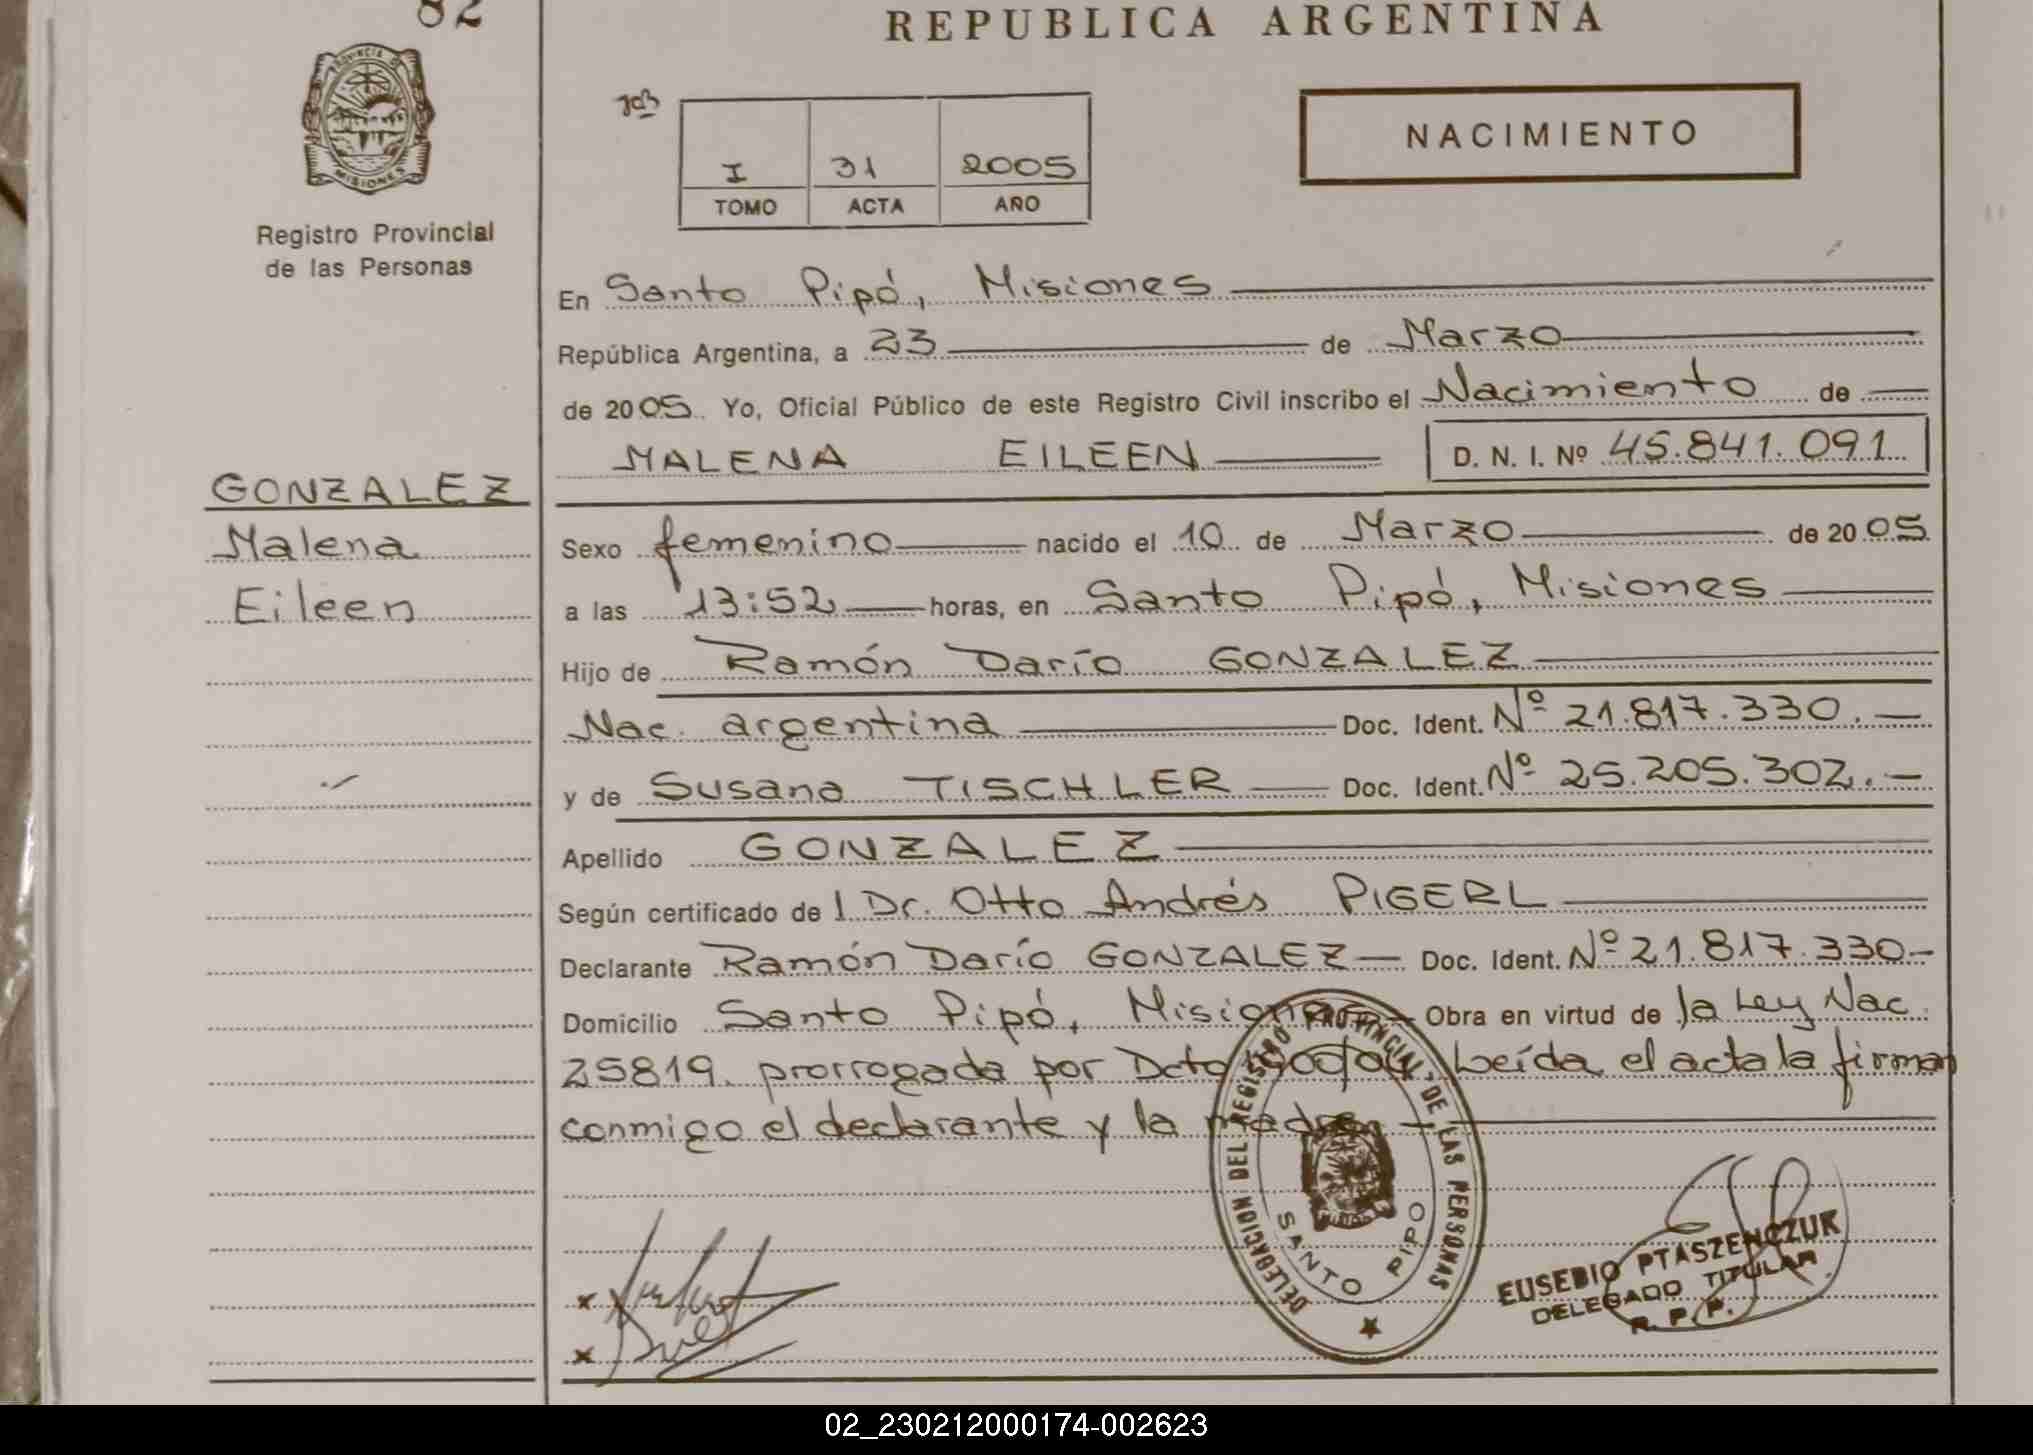 82
REPUBLICA ARGENTINA
PROVINCIA DE MISIONES
Registro Provincial
de las Personas
103
I 31 2005
TOMO ACTA AÑO
NACIMIENTO
En Santo Pipó, Misiones
República Argentina, a 23 de Marzo
de 2005. Yo, Oficial Público de este Registro Civil inscribo el Nacimiento de
MALENA EILEEN D. N. I. Nº 45.841.091
GONZALEZ
Malena
Eileen
Sexo femenino nacido el 10 de Marzo de 2005
a las 13:52 horas, en Santo Pipó, Misiones
Hijo de Ramón Darío GONZALEZ
Nac. argentina Doc. Ident. Nº 21.817.330.-
y de Susana TISCHLER Doc. Ident. Nº 25.205.302.-
Apellido GONZALEZ
Según certificado de l Dr. Otto Andrés PIGERL
Declarante Ramón Darío GONZALEZ Doc. Ident. Nº 21.817.330-
Domicilio Santo Pipó, Misiones Obra en virtud de la Ley Nac.
25819. prorrogada por Dcto Leída el acta la firman
conmigo el declarante y la madre.
DELEGACION DEL REGISTRO PROVINCIAL DE LAS PERSONAS
SANTO PIPO
EUSEBIO PTASZENCZUK
DELEGADO TITULAR
R. P. P.
02_230212000174-002623